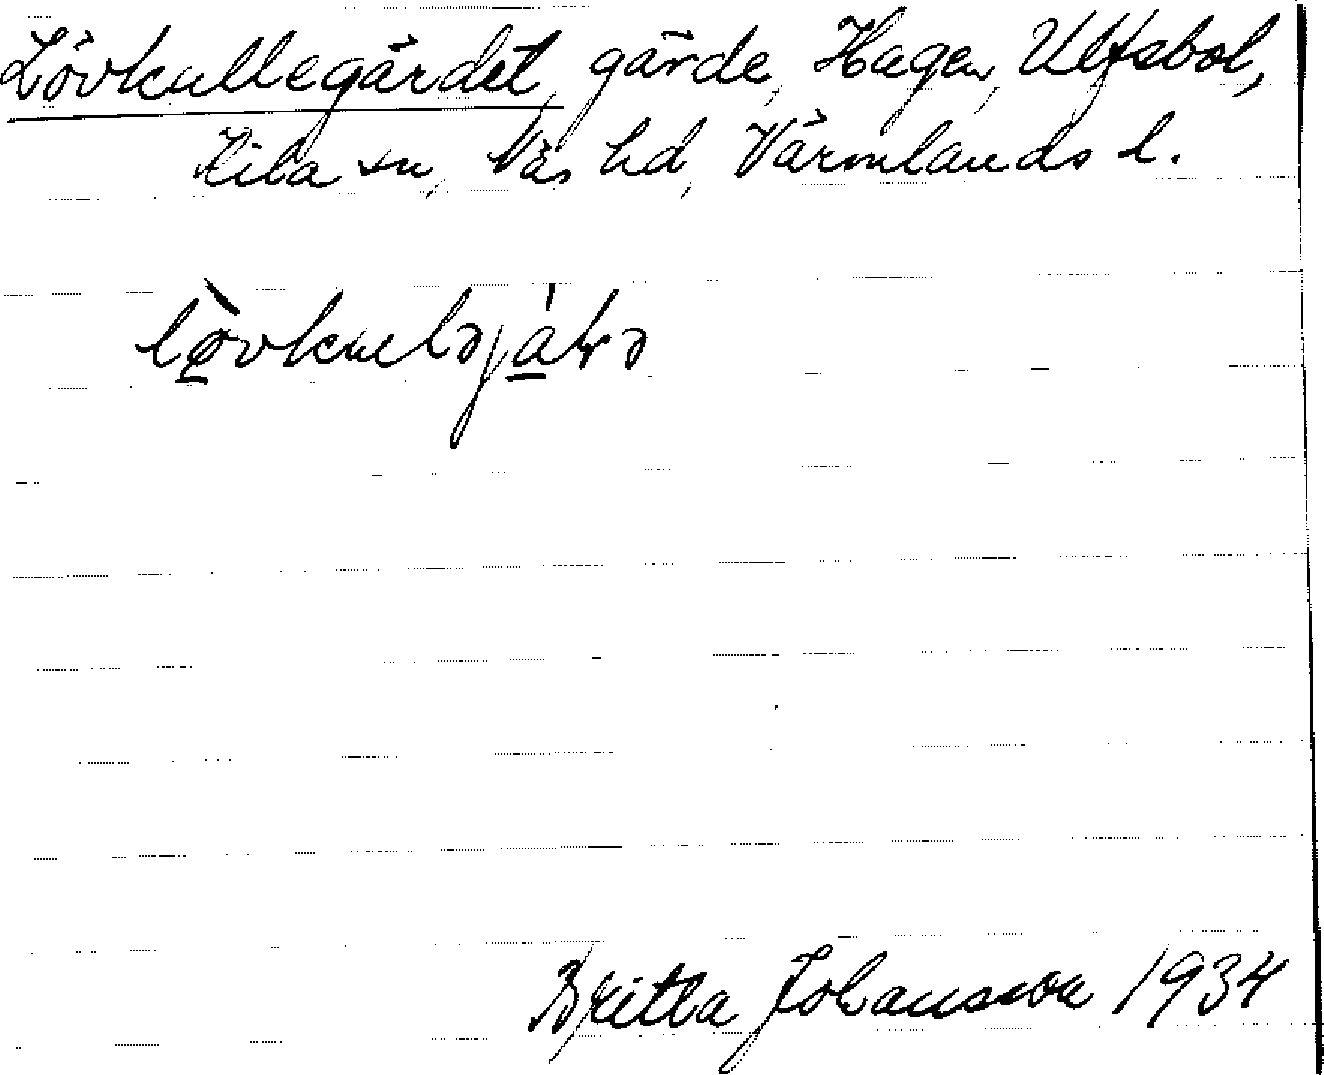 Lövkullegärdet, gärde, Hagen, Ulfsbol,
Kila sn, Näs hd, Värmlands l.
Britta Johansson 1934